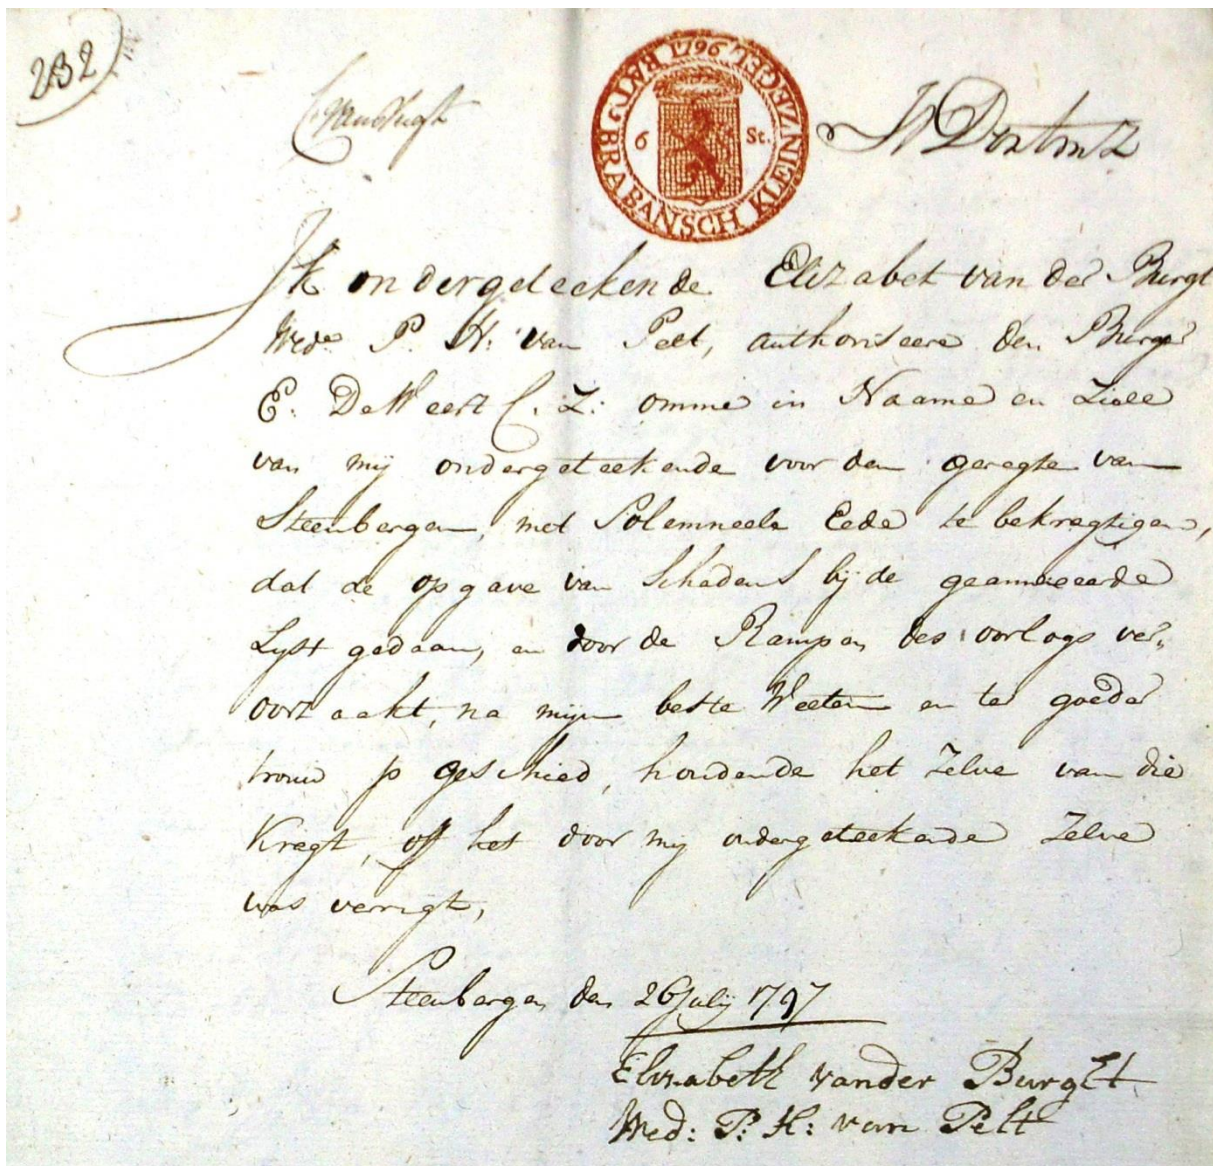 232
C. van Vugt
BATs BRABANSCH KLEIN ZEGEL 1796
6 St.
Ik ondergeteekende Elizabet van der Burgt
Wede P. H: van Pelt, authoriseere den Burger
E. De Weert C. Z: omme in Naame en Ziele
van mij ondergeteekende voor den geregte van
Steenbergen, met Solemneele Eede te bekragtigen,
dat de opgave van Schadens bij de geannexeerde
Lyst gedaan, en door de Rampen des oorlogs ver„
oorzaakt, na mijn beste Weeten en ter goeder
trouw is geschied, houdende het Zelve van die
Kragt, off het door mij ondergeteekende Zelve
was verrigt,
Steenbergen den 26 July 1797
Elizabeth vander Burgt
Wed: P: H: van Pelt